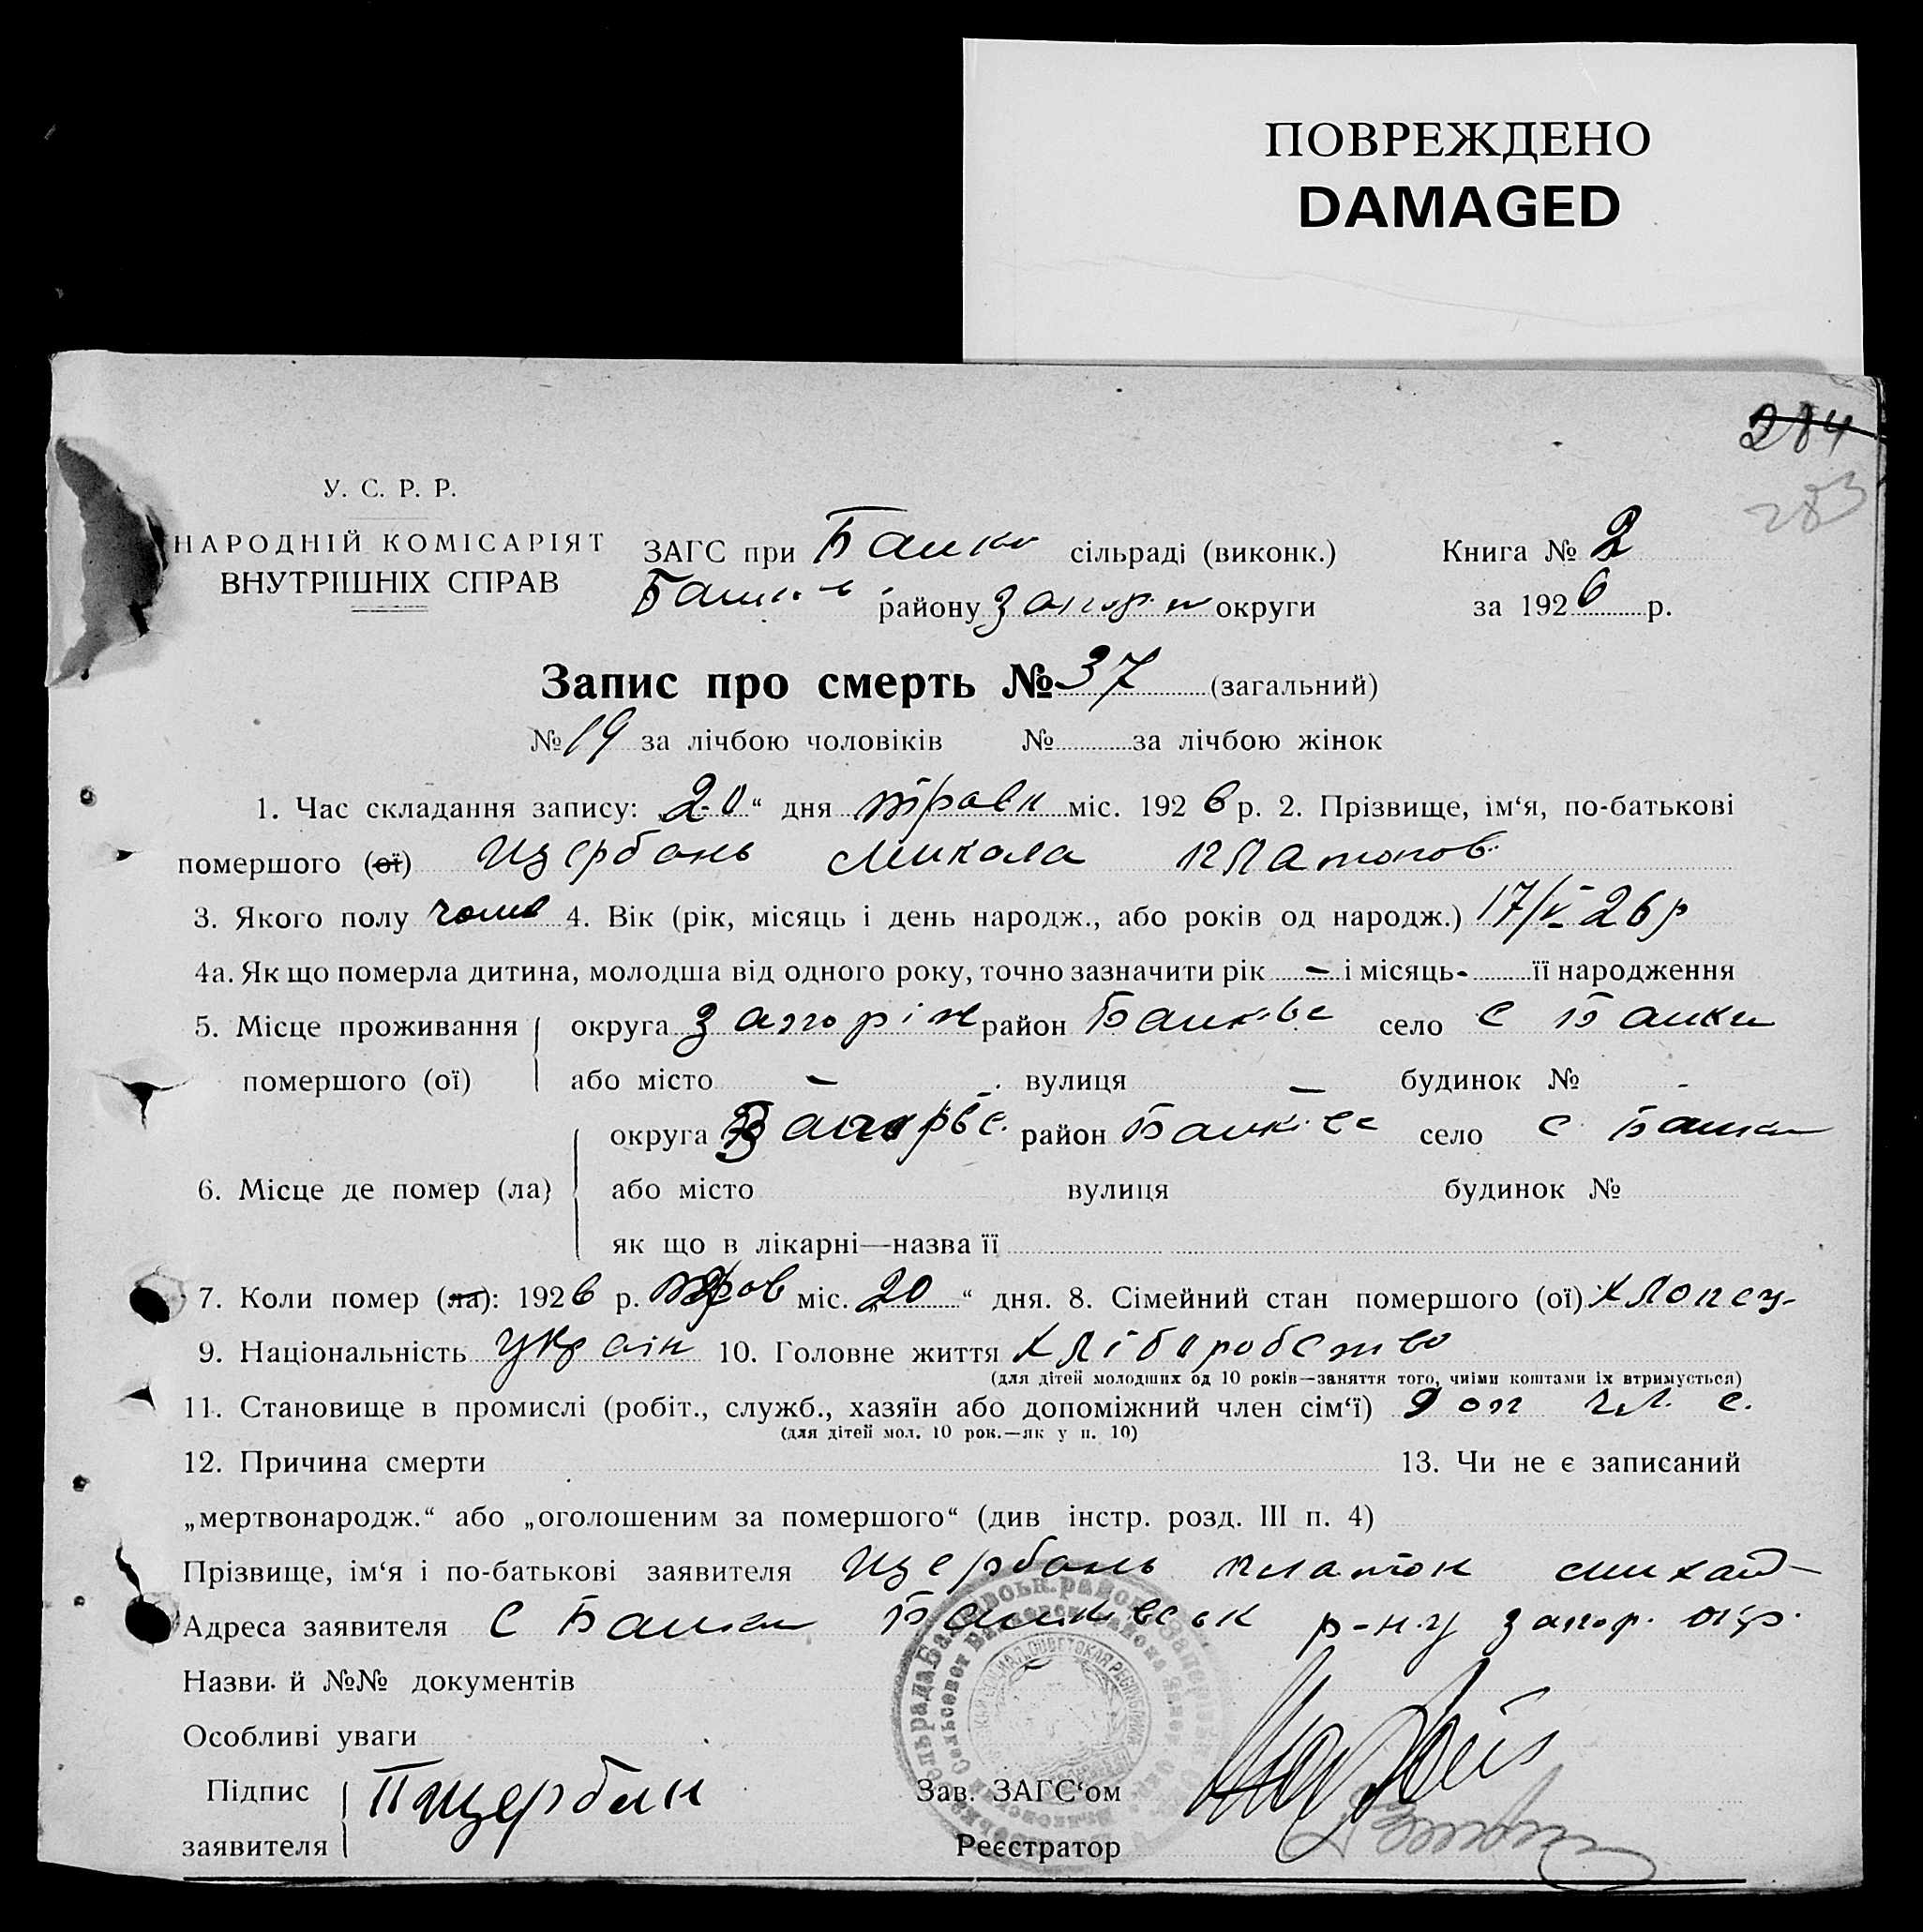 ПОВРЕЖДЕНО
DAMAGED
284
283
У. С. Р. Р.
НАРОДНІЙ КОМІСАРІЯТ
ВНУТРІШНІХ СПРАВ
ЗАГС при Балки сільраді (виконк.) Книга № 2
району Запор округи за 1926 р.
Запис про смерть № 37 (загальний)
№ 19 за лічбою чоловіків № за лічбою жінок
1. Час складання запису: „20“ дня травн міс. 1926 р. 2. Прізвище, ім‘я, по-батькові
помершого (ої) Щербань Микола Платонов.
3. Якого полу 4. Вік (рік, місяць і день народж., або років од народж.) 17/V 26 р
4а. Як що померла дитина, молодша від одного року, точно зазначити рік – і місяць - її народження
5. Місце проживання округа Запоріж район Балківс село с Балки
помершого (ої) або місто – вулиця – будинок № -
округа район Балківс село с Балки
6. Місце де помер (ла) або місто вулиця будинок №
як що в лікарні—назва її
7. Коли помер (ла): 1926 р. трав міс. „20“ дня. 8. Сімейний стан помершого (ої) хлопец
9. Національність україн 10. Головне життя хліборобство
(для дітей молодших од 10 років—заняття того, чиїми коштами їх втримується)
11. Становище в промислі (робіт., служб., хазяїн або допоміжний член сім‘ї) доп чл. с.
(для дітей мол. 10 рок.—як у п. 10)
12. Причина смерти 13. Чи не є записаний
„мертвонародж.“ або „оголошеним за помершого“ (див інстр. розд. III п. 4)
Прізвище, ім‘я і по-батькові заявителя Щербань Платон Михайл
Адреса заявителя с Балки Балківськ р-ну Запор. окр.
Назви й №№ документів
Особливі уваги
Підпис заявителя П Щербан
Зав. ЗАГС‘ом
Реєстратор